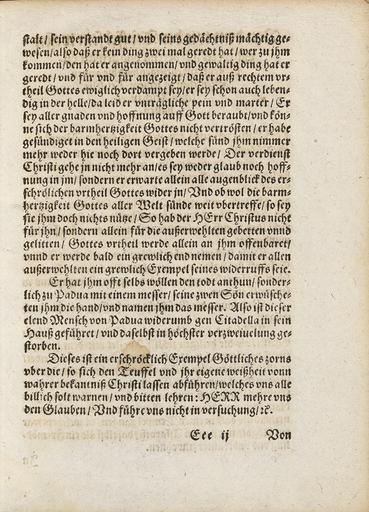 stalt/ sein verstandt gut/ vnd seins gedächtniß mächtig ge-
wesen/also daß er kein ding zwei mal geredt hat/ wer zu jhm
kommen/den hat er angenommen/ vnd gewaltig ding hat er
geredt/ vnd für vnd für angezeigt/ daß er auß rechtem vr-
theil Gottes ewiglich verdampt sey/ er sey schon auch leben-
dig in der helle/da leid er vnträgliche pein vnd marter/ Er
sey aller gnaden vnd hoffnung auff Gott beraubt/vnd kön-
ne sich der barmhertzigkeit Gottes nicht vertrösten/ er habe
gesündiget in den heiligen Geist/ welche sünd jhm nimmer
mehr weder hie noch dort vergeben werde/ Der verdienst
Christi gehe jn nicht mehr an/es sey weder glaub noch hoff-
nung in jm/ sondern er erwarte allein alle augenblick des er-
schröcklichen vrtheil Gottes wider jn/ Vnd ob wol die barm-
hertzigkeit Gottes aller Welt sünde weit vbertreffe/ so sey
sie jhm doch nichts nütze/ So hab der HErr Christus nicht
für jhn/ sondern allein für die außerwehlten gebetten vnnd
gelitten/ Gottes vrtheil werde allein an jhm offenbaret/
vnnd er werde bald ein grewlich end nemen/ damit er allen
außerwehlten ein grewlich Exempel seines widerruffs seie.
Er hat jhm offt selbs wöllen den todt anthun/ sonder-
lich zu Padua mit einem messer/ seine zwen Sön erwüsche-
ten jhm die hand/vnd namen jhm das messer. Also ist dieser
elend Mensch von Padua widerumb gen Citadella in sein
Hauß geführet/ vnd daselbst in höchster verzweiuelung ge-
storben.
Dieses ist ein erschröcklich Exempel Göttliches zorns
vber die/ so sich den Teuffel vnd jhr eigene weißheit vonn
wahrer bekantniß Christi lassen abführen/welches vns alle
billich solt warnen/ vnd bitten lehren: HERR mehre vns
den Glauben/ Vnd führe vns nicht in versuchung/ :c.
Eee ij Von